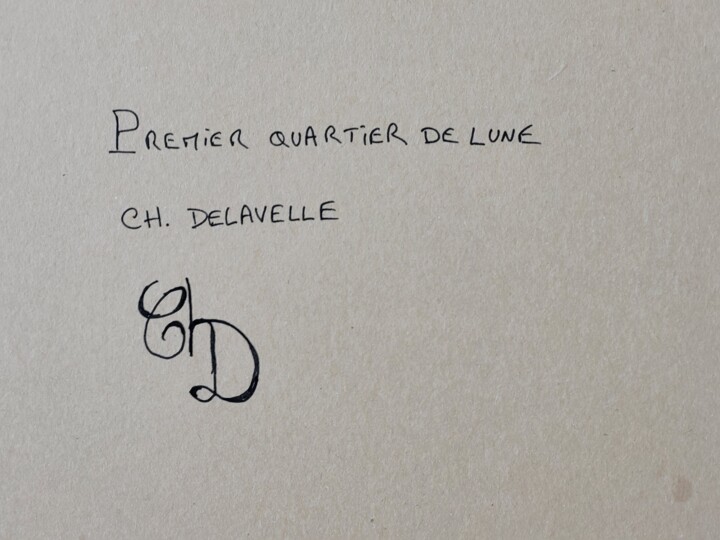 PREMiER QUARTiER DE LUNE
CH. DELAVELLE
ChD